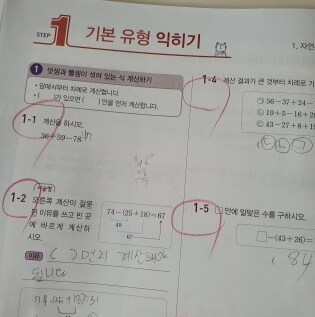 STEP 1 기본 유형 익히기
1. 자연
1 덧셈과 뺄셈이 섞여 있는 식 계산하기
• 앞에서부터 차례로 계산합니다.
• ( )가 있으면 ( ) 안을 먼저 계산합니다.
1-1 계산을 하시오.
36+59-78
서술형
1-2 오른쪽 계산이 잘못
된 이유를 쓰고 빈 곳
에 바르게 계산하
시오.
74-(25+18)=67
49
67
이유 ( ) 먼저 계산해야
됩니다
1-4 계산 결과가 큰 것부터 차례로 기
㉠ 56-37+24-
㉡ 19+5-16+2
㉢ 43-27+8+1
1-5 □ 안에 알맞은 수를 구하시오.
□-(43+26)=
84